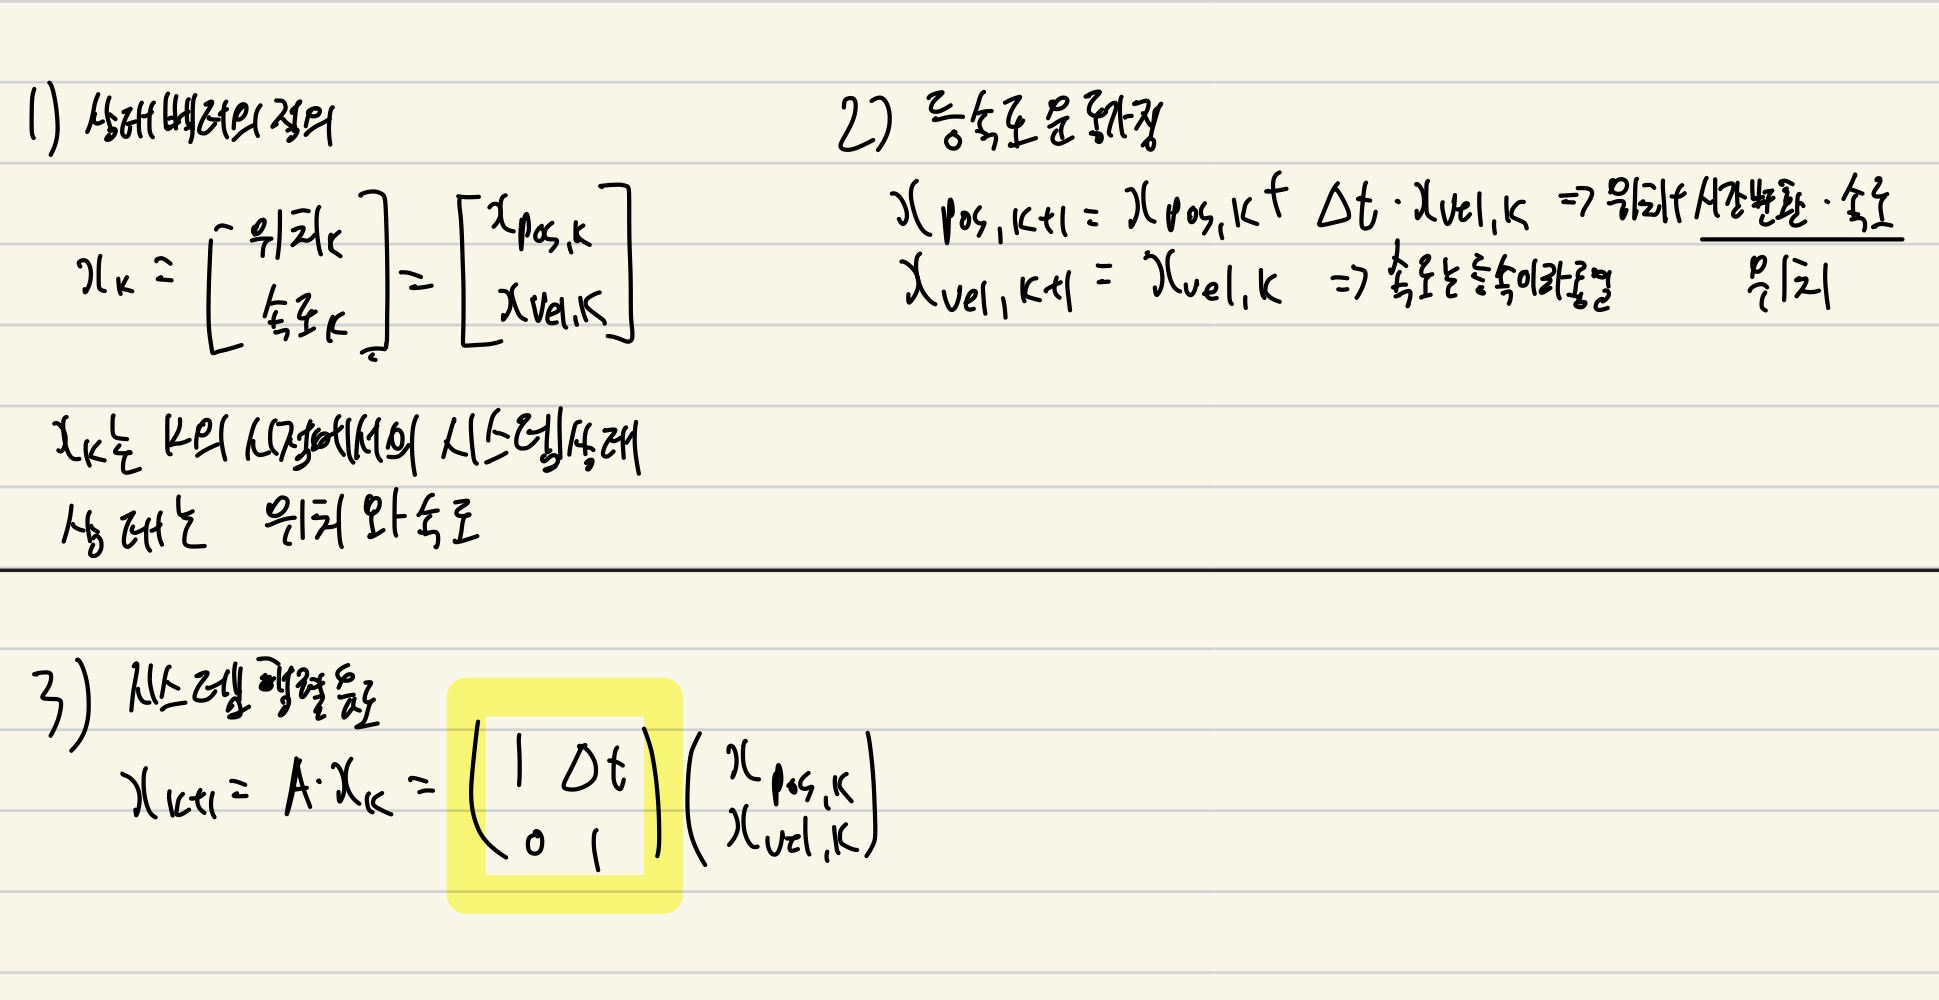 1) 상태벡터의 정의
x_k = [위치_k 속도_k] = [x_pos,k x_vel,k]
x_k는 k의 시점에서의 시스템상태
상태는 위치와 속도
2) 등속도 운동가정
x_pos,k+1 = x_pos,k + Δt · x_vel,k => 위치 + 시간변환 · 속도
위치
x_vel,k+1 = x_vel,k => 속도는 등속이라 동일
3) 시스템 행렬 유도
x_k+1 = A · x_k = (1 Δt 0 1) (x_pos,k x_vel,k)